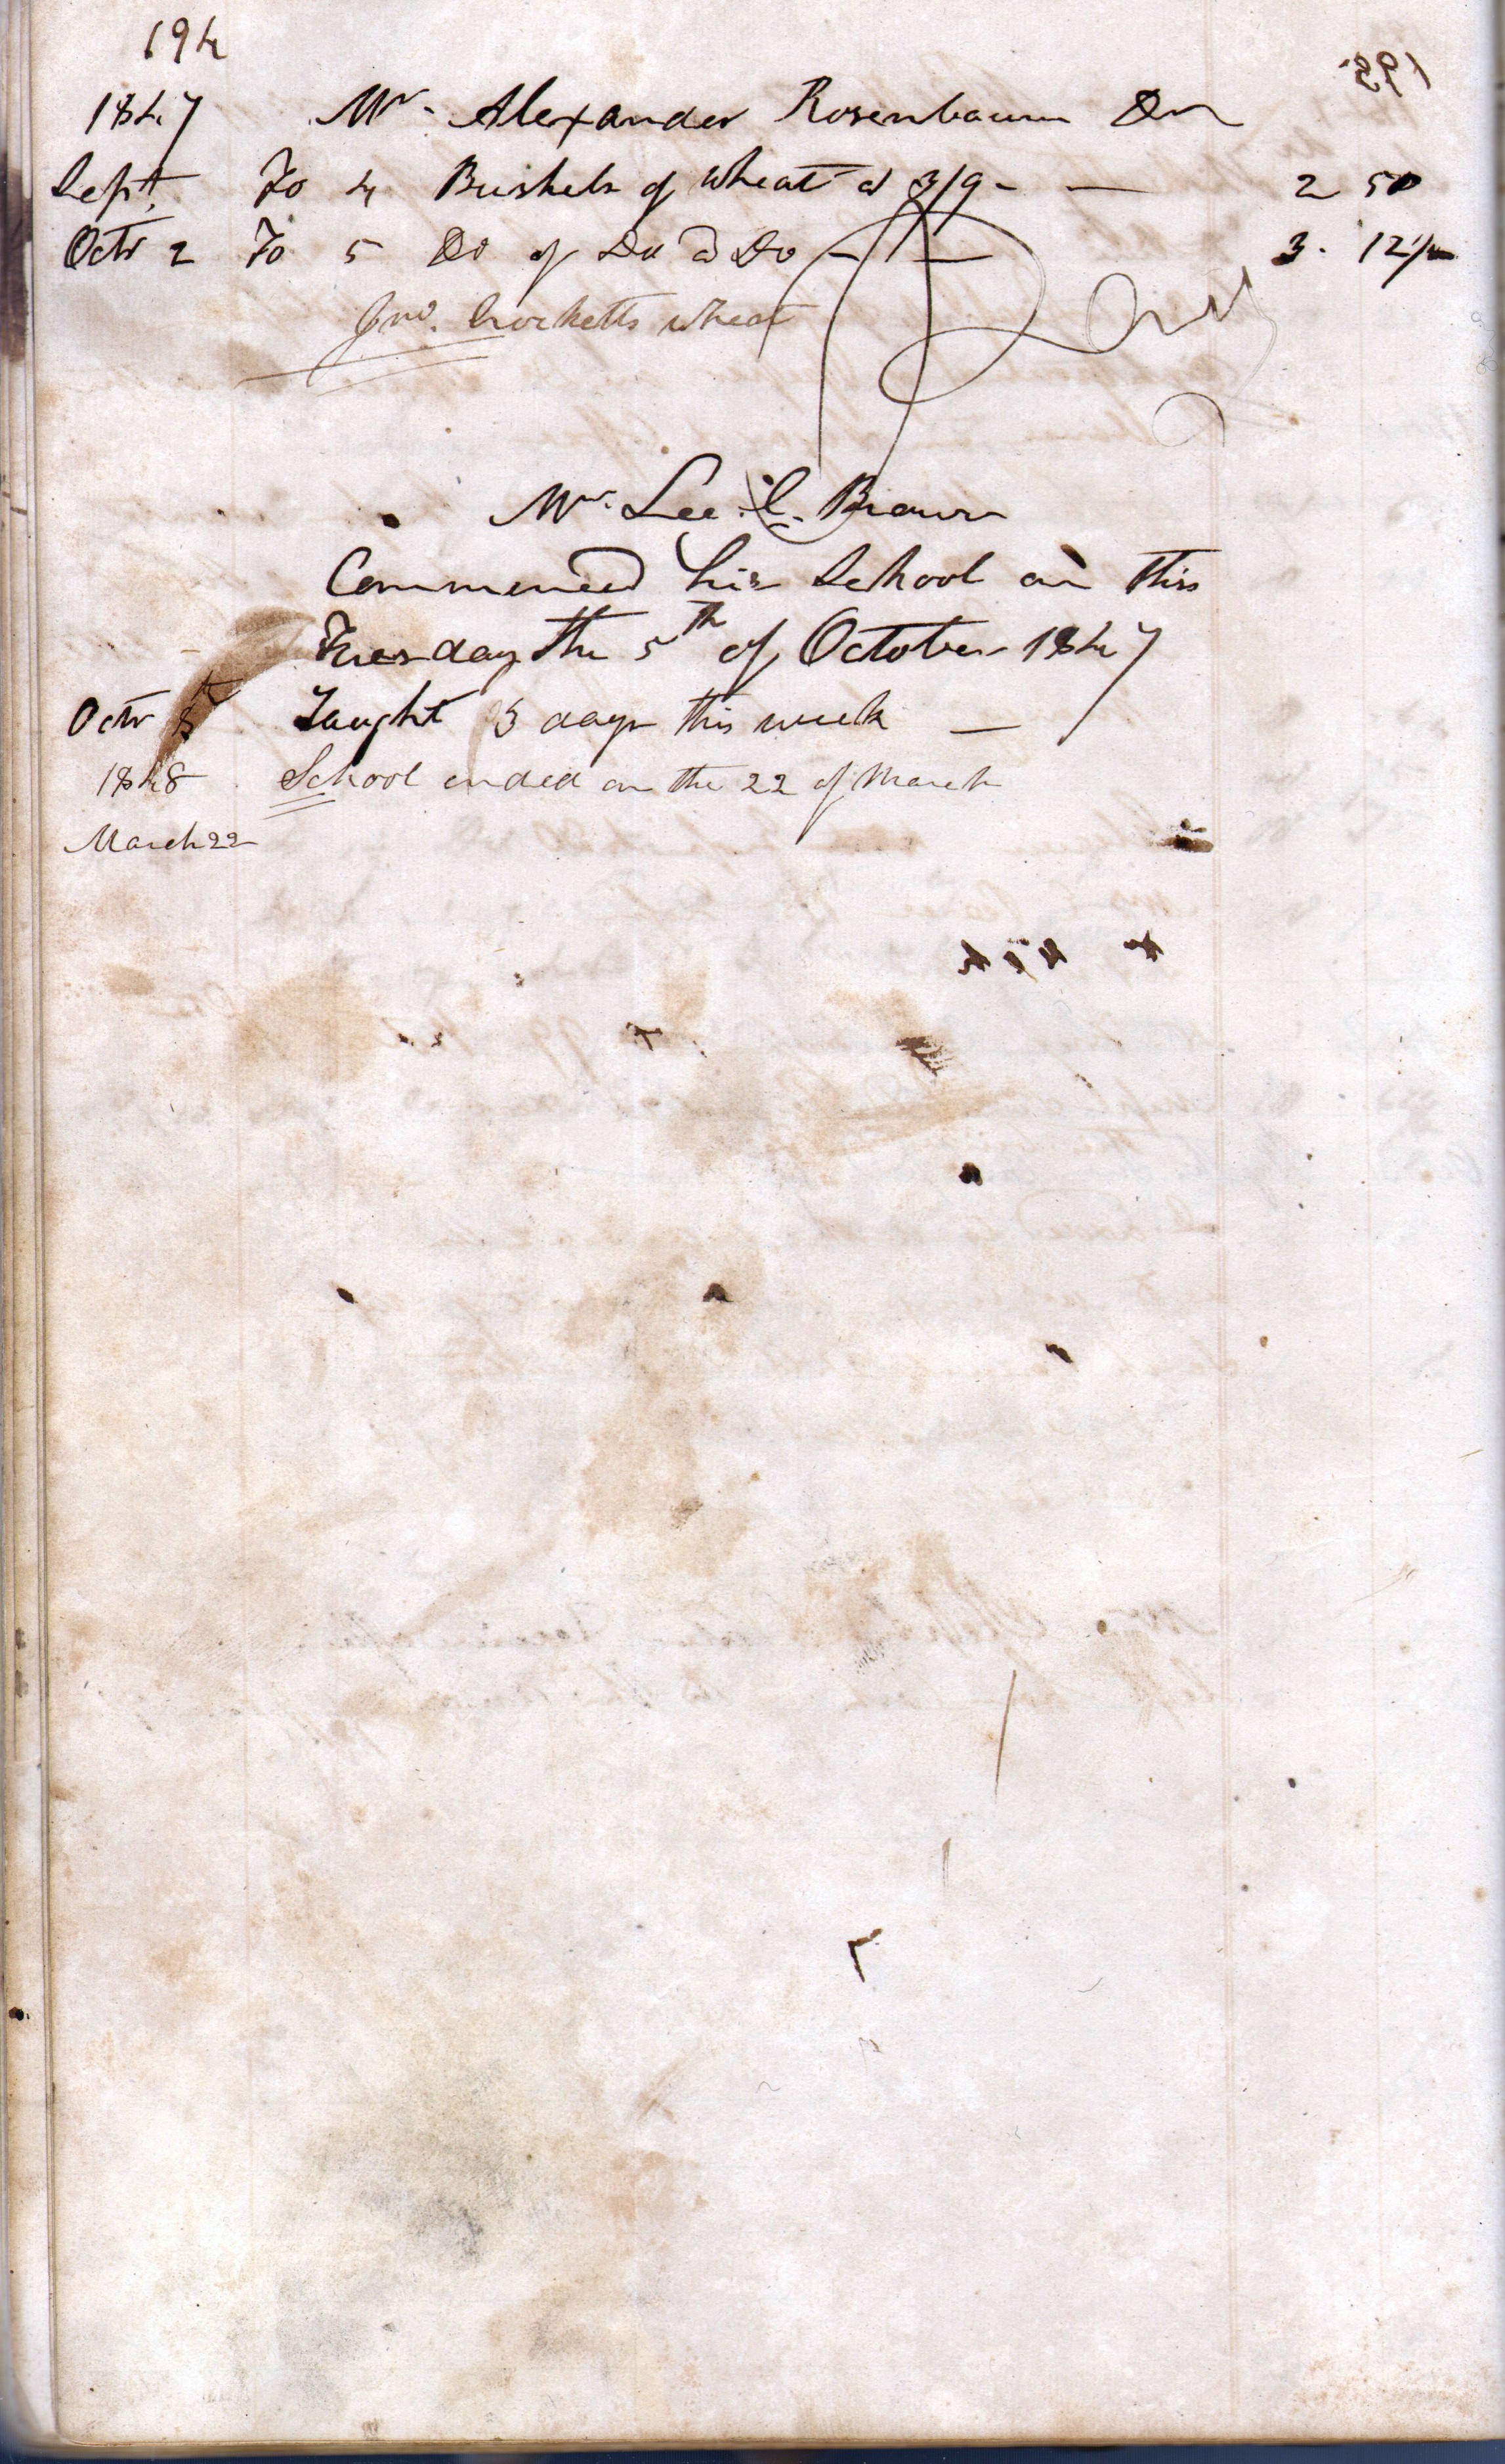 194
195
1847 Mr. Alexander Rosenbaum Dr
Sept. To 4 Bushels of wheat a 3/9 - — 2 50
Octr 2 To 5 Do of Do a Do - — 3. 12 1/2
Jno. Crocketts wheat
Mr. Lee C. Brown
Commenced his School on this
Tuesday the 5th of October 1847
Octr 8th Taught 3 days this week —
1848 School ended on the 22 of March
March 22